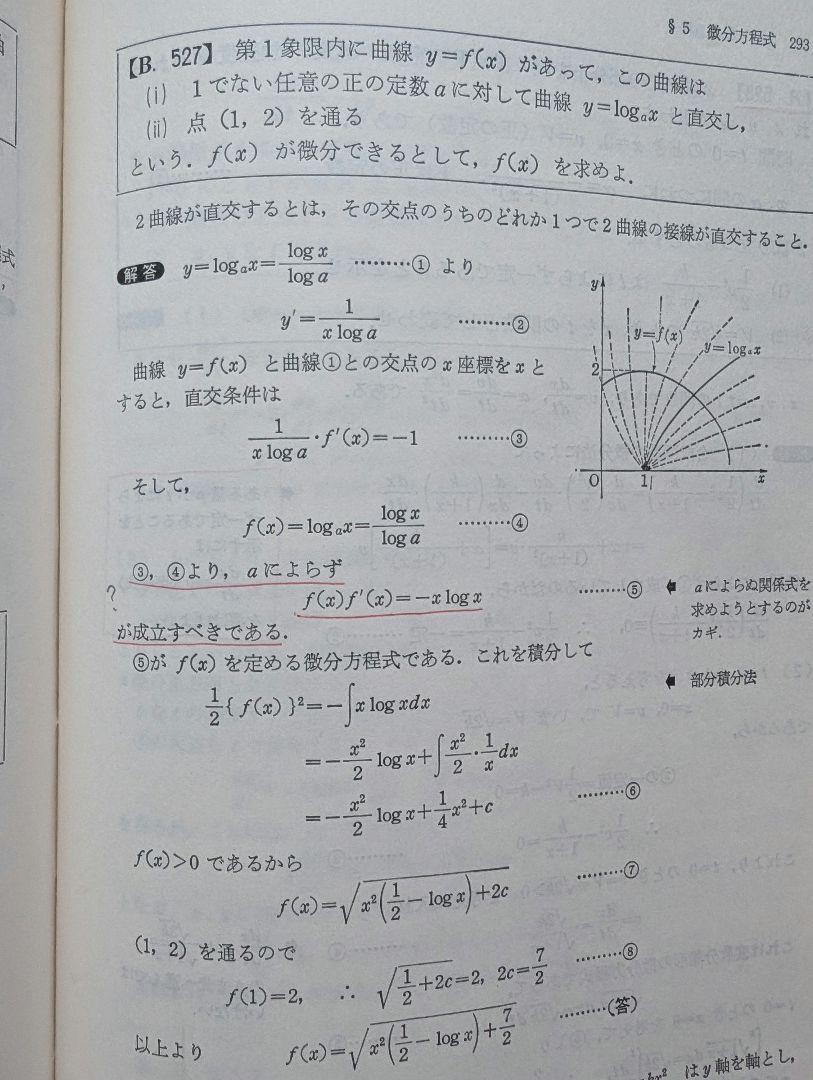 §5 微分方程式 293
【B. 527】 第1象限内に曲線 y=f(x) があって，この曲線は
(i) 1でない任意の正の定数aに対して曲線 y=logₐx と直交し，
(ii) 点 (1, 2) を通る
という．f(x) が微分できるとして，f(x) を求めよ．
2曲線が直交するとは，その交点のうちのどれか1つで2曲線の接線が直交すること．
解答 y=logₐx=log x/log a ………① より
y′=1/(x log a) ………②
曲線 y=f(x) と曲線①との交点の x 座標を x と
すると，直交条件は
1/(x log a)・f′(x)=−1 ………③
そして，
f(x)=logₐx=log x/log a ………④
③，④より，aによらず
f(x)f′(x)=−x log x ………⑤
?
が成立すべきである．
⑤が f(x) を定める微分方程式である．これを積分して
1/2{f(x)}²=−∫x log xdx
=−x²/2 log x+∫x²/2・1/x dx
=−x²/2 log x+1/4 x²+c ………⑥
f(x)>0 であるから
f(x)=√(x²(1/2−log x)+2c) ………⑦
(1, 2) を通るので
f(1)=2, ∴ √(1/2+2c)=2, 2c=7/2 ………⑧
以上より f(x)=√(x²(1/2−log x)+7/2) ………(答)
y
y=f(x)
y=logₐx
2
O
1
x
aによらぬ関係式を
求めようとするのが
カギ．
部分積分法
はy軸を軸とし，